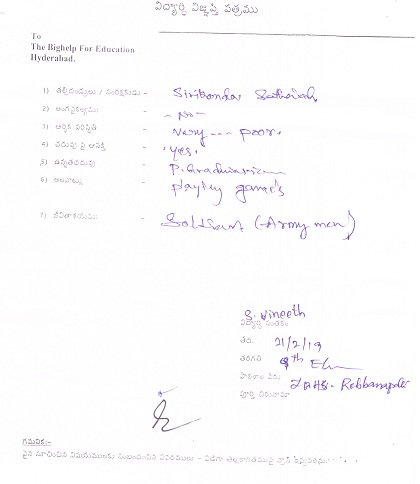 విద్యార్థి విజ్ఞప్తి పత్రము
To
The Bighelp For Education
Hyderabad.
1) తల్లిదండ్రులు / సంరక్షకుడు - Sirikonda Sathaiah
2) అంగవైకల్యము - - No -
3) ఆర్థిక పరిస్థితి - Very --- poor.
4) చదువు పై ఆసక్తి - 'Yes.'
5) ఉన్నతచదువు -
6) అలవాట్లు - playing games
7) జీవితాశయము - (Army men)
S. Vineeth
విద్యార్థి సంతకం
తేది. 21/2/19
తరగతి
పాఠశాల పేరు
పూర్తి చిరునామా
గమనిక:-
పైన సూచించిన విషయములకు సంబంధించిన వివరములు -